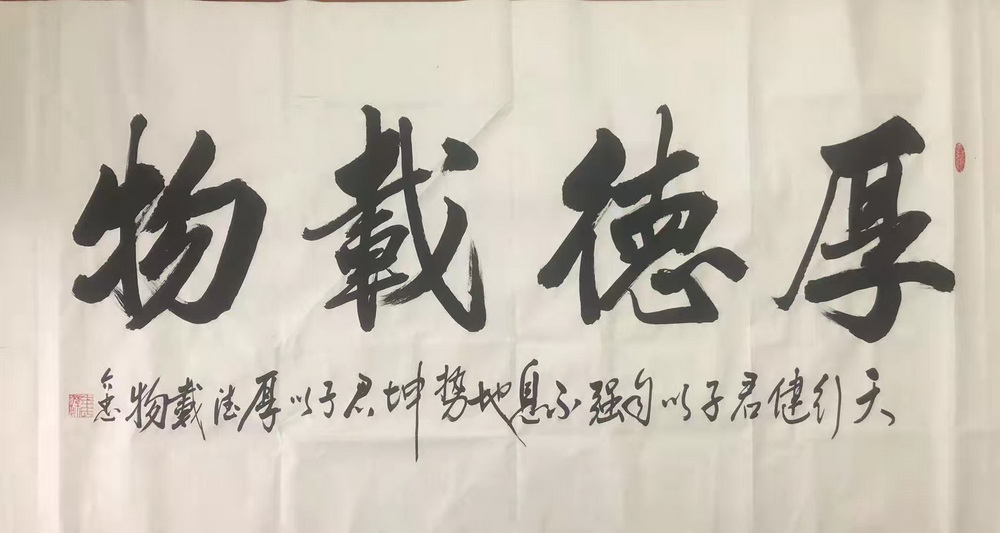 厚德載物
天行健君子以自强不息地势坤君子以厚德載物